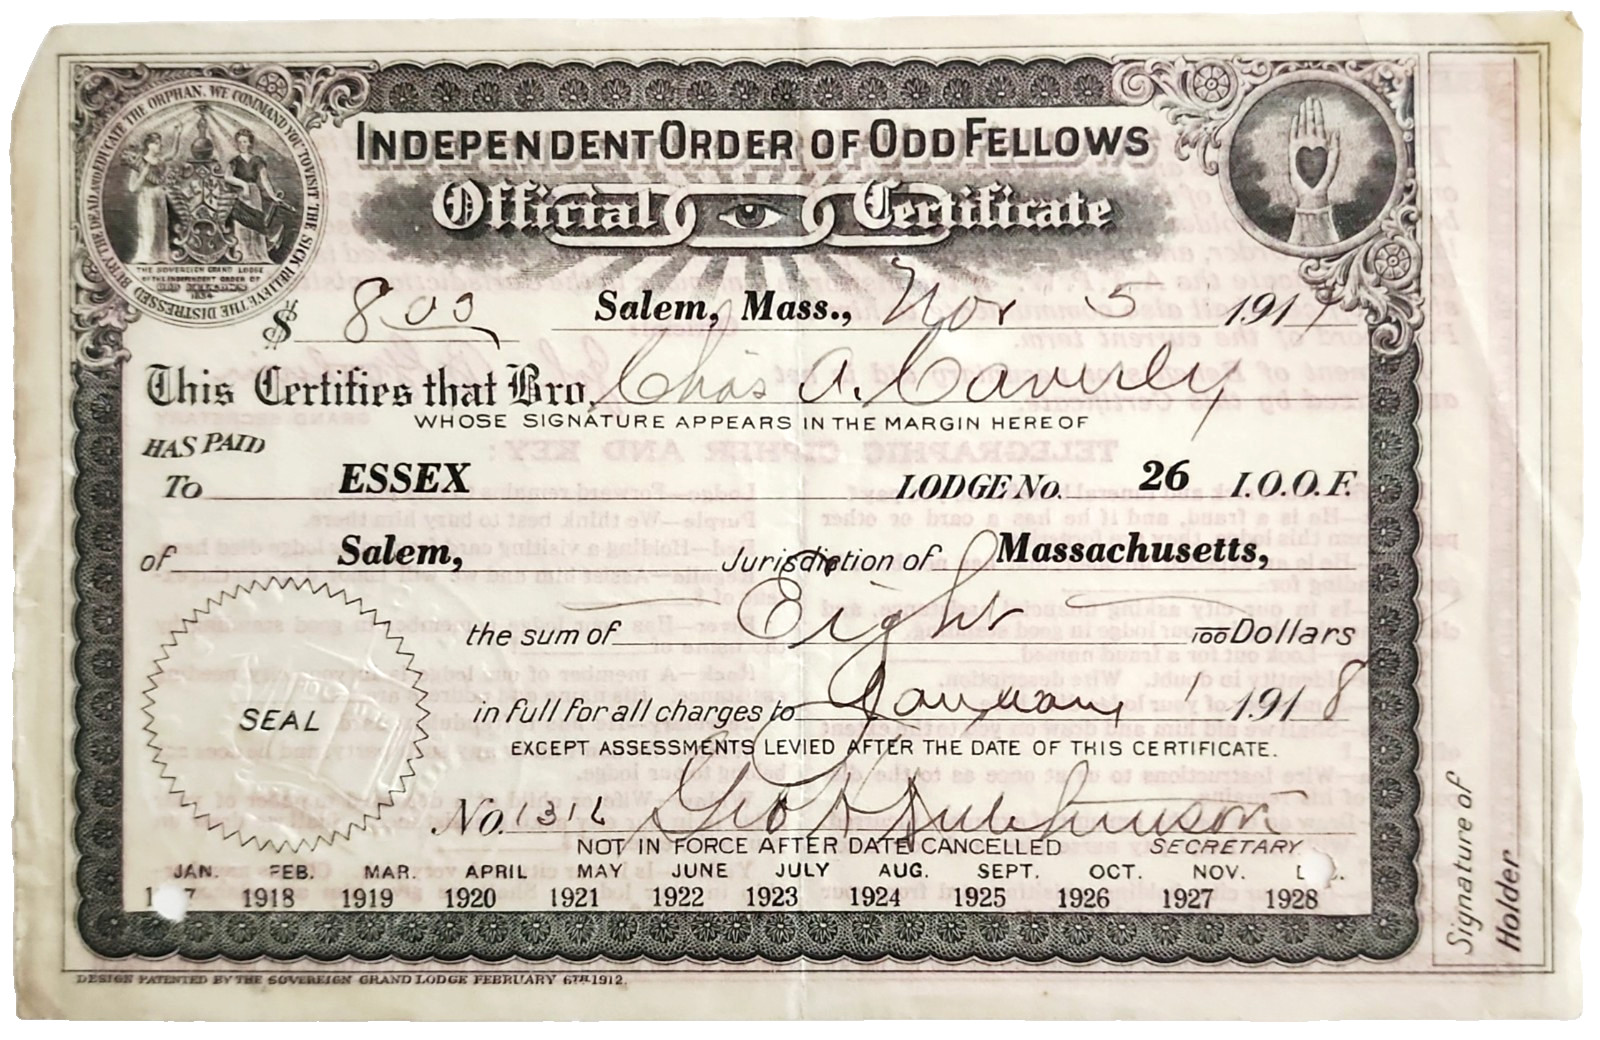 BURY THE DEAD. AND EDUCATE THE ORPHAN. WE COMMAND YOU TO VISIT THE SICK RELIEVE THE DISTRESSED
THE SOVEREIGN GRAND LODGE
OF THE INDEPENDENT ORDER OF
ODD FELLOWS
INDEPENDENT ORDER OF ODD FELLOWS
Official Certificate
$ 8.00 Salem, Mass., Nov 5 1917
This Certifies that Bro. Chas A. Caverly
WHOSE SIGNATURE APPEARS IN THE MARGIN HEREOF
HAS PAID
To ESSEX LODGE No. 26 I.O.O.F.
of Salem, Jurisdiction of Massachusetts,
the sum of Eight 100 Dollars
in full for all charges to January 1 1918
EXCEPT ASSESSMENTS LEVIED AFTER THE DATE OF THIS CERTIFICATE.
SEAL
No. 1316 Geo H Hutchinson
NOT IN FORCE AFTER DATE CANCELLED SECRETARY
JAN. FEB. MAR. APRIL MAY JUNE JULY AUG. SEPT. OCT. NOV.
1918 1919 1920 1921 1922 1923 1924 1925 1926 1927 1928
DESIGN PATENTED BY THE SOVEREIGN GRAND LODGE FEBRUARY 6TH 1912.
Signature of
Holder